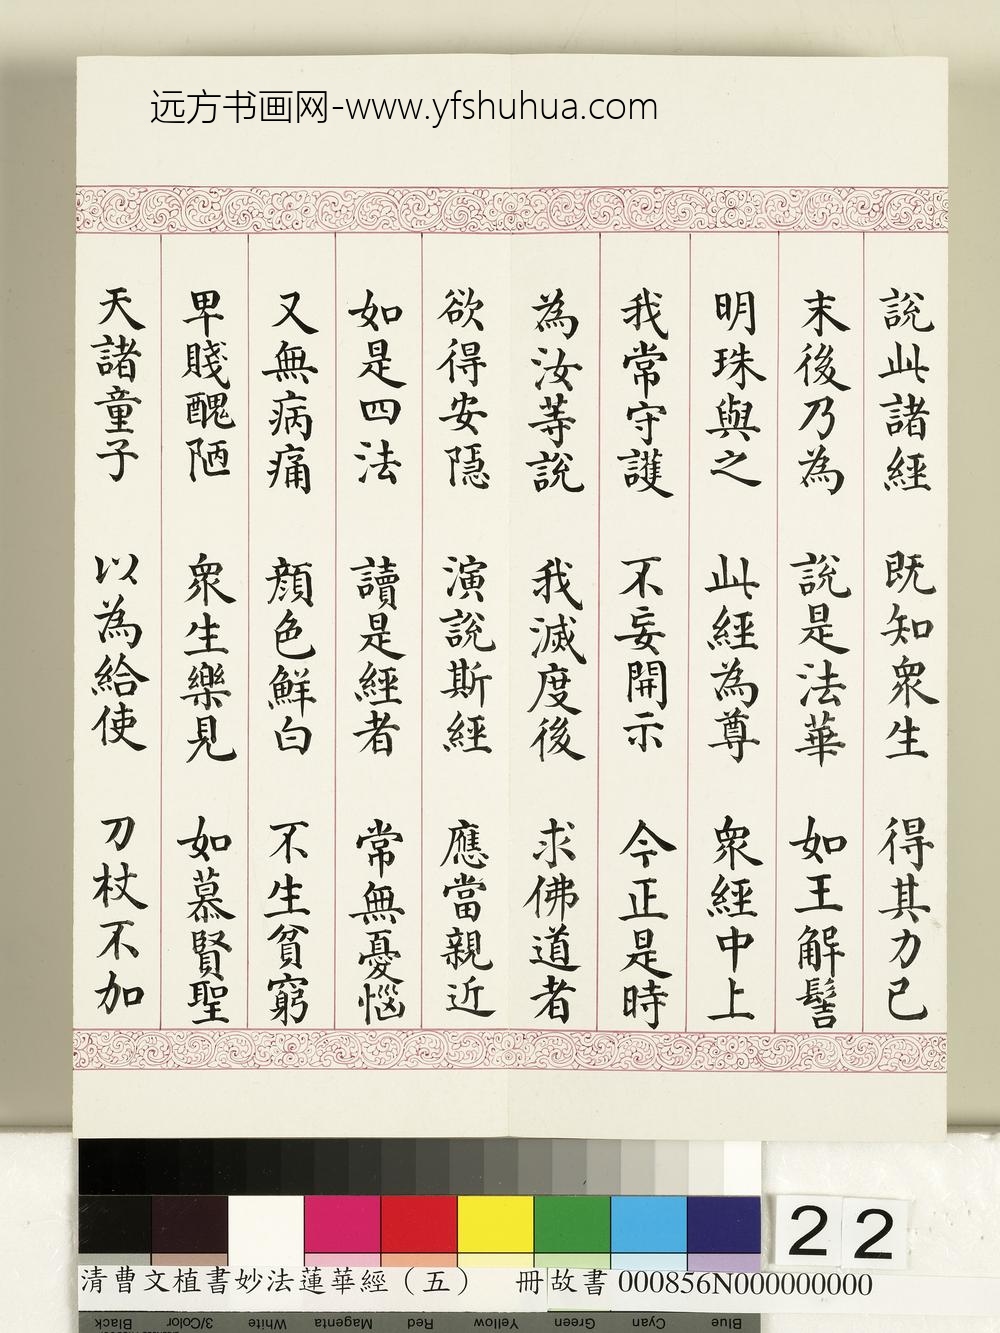 远方书画网-www.yfshuhua.com
說此諸經 既知衆生 得其力已
末後乃為 說是法華 如王解髻
明珠與之 此經為尊 衆經中上
我常守護 不妄開示 今正是時
為汝等說 我滅度後 求佛道者
欲得安隱 演說斯經 應當親近
如是四法 讀是經者 常無憂惱
又無病痛 顏色鮮白 不生貧窮
卑賤醜陋 衆生樂見 如慕賢聖
天諸童子 以為給使 刀杖不加
22
清曹文植書妙法蓮華經（五） 冊 故書 000856N000000000
Black 3/Color White Magenta Red Yellow Green Cyan Blue